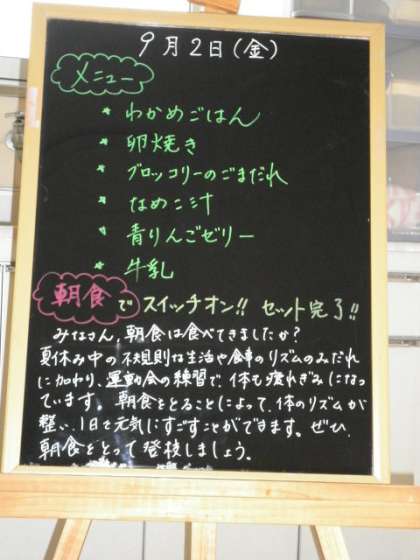 9月2日(金)
メニュー
* わかめごはん
* 卵焼き
* ブロッコリーのごまだれ
* なめこ汁
* 青りんごゼリー
* 牛乳
朝食でスイッチオン!! セット完了!!
みなさん、朝食は食べてきましたか?
夏休み中の不規則な生活や食事のリズムのみだれ
に加わり、運動会の練習で、体も疲れぎみになっ
ています。朝食をとることによって、体のリズムが
整い、1日を元気にすごすことができます。ぜひ、
朝食をとって登校しましょう。